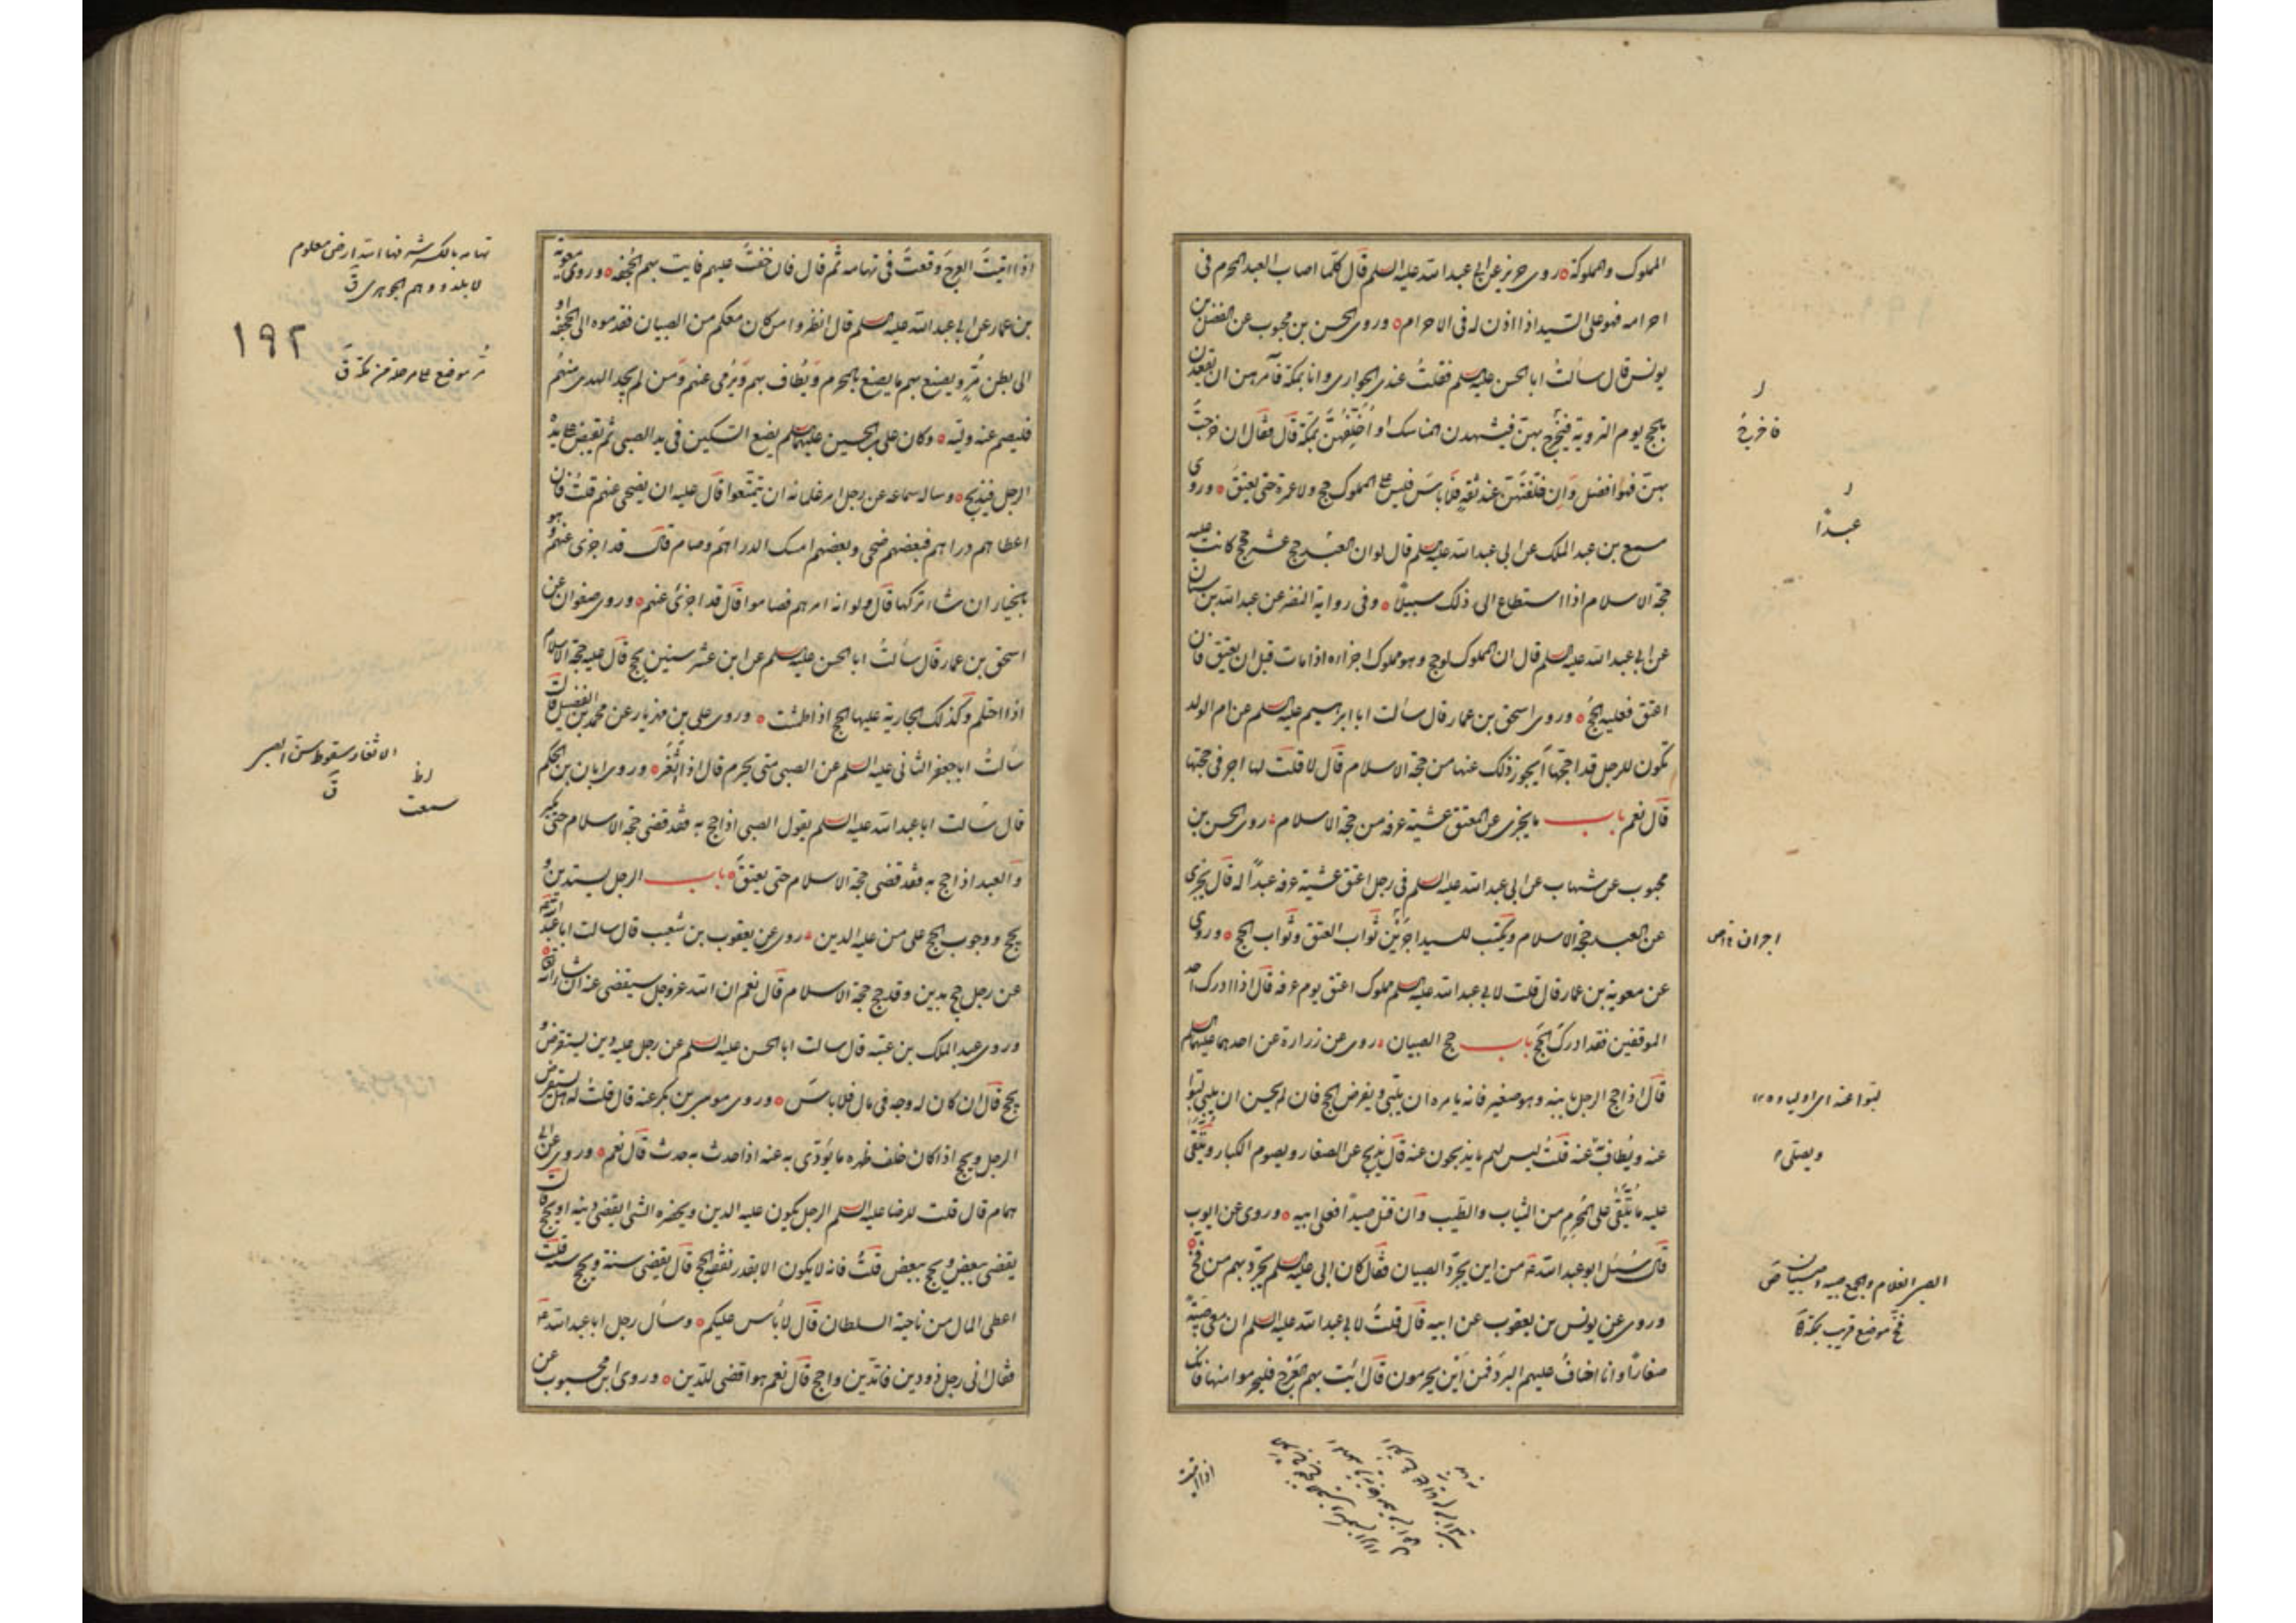 المملوك والمملوكة روى حريز عن ابي عبد الله عليه السلم قال كلما اصاب العبد المحرم في
احرامه فهو على السيد اذا اذن له في الاحرام وروى الحسن بن محبوب عن الفضل بن
يونس قال سالت ابا الحسن عليه السلم فقلت عندي الجواري وانا بمكة فآمرهن ان يعقدن
بالحج يوم التروية فيخرج بهن فيشهدن المناسك او اخلفهن بمكة قال فقال ان خرجت
بهن فهو افضل وان خلفتهن عند ثقة فلا باس فليس على المملوك حج ولا عمرة حتى يعتق وروى
مسمع بن عبد الملك عن ابي عبد الله عليه السلم قال لو ان العبد حج عشر حجج كانت عليه
حجة الاسلام اذا استطاع الى ذلك سبيلا وفي رواية النضر عن عبد الله بن سنان
عن ابي عبد الله عليه السلم قال ان المملوك لو حج وهو مملوك اجزاه اذا مات قبل ان يعتق فان
اعتق فعليه الحج وروى اسحق بن عمار قال سالت ابا ابرهيم عليه السلم عن ام الولد
تكون للرجل قد احجها ايجوز ذلك عنها من حجة الاسلام قال لا قلت لها اجر في حجتها
قال نعم باب ما يجزى عن المعتق عشية عرفه من حجة الاسلام روى الحسن بن
محبوب عن شهاب عن ابي عبد الله عليه السلم في رجل اعتق عشية عرفه عبدا له قال يجزى
عن العبد حجة الاسلام ويكتب للسيد اجرين ثواب العتق وثواب الحج وروى
عن معوية بن عمار قال قلت لابي عبد الله عليه السلم مملوك اعتق يوم عرفه قال اذا ادرك احد
الموقفين فقد ادرك الحج باب حج الصبيان روى عن زرارة عن احدهما عليهما السلم
قال اذا حج الرجل بابنه وهو صغير فانه يامره ان يلبي ويفرض الحج فان لم يحسن ان يلبي لبوا
عنه ويطاف به عنه قلت ليس لهم ما يذبحون عنه قال يذبح عن الصغار ويصوم الكبار ويتقى
عليه ما يتقى على المحرم من الثياب والطيب وان قتل صيدا فعلى ابيه وروى عن ايوب
قال سئل ابو عبد الله من اين يجرد الصبيان فقال كان ابي عليه السلم يجرد بهم من فخ
وروى عن يونس بن يعقوب عن ابيه قال قلت لابي عبد الله عليه السلم ان معي صبية
صغارا وانا اخاف عليهم البرد فمن اين يحرمون قال ائت بهم العرج فليحرموا منها فانك
فاخرج
عبدا
اجران
لبوا عنه
ويصلى
الصبي الغلام والجمع صبية وصبيان
فخ موضع قريب بمكة
اذا اتيت
اذا اتيت العرج وقعت في تهامه ثم قال فان خفت عليهم فايت بهم الجحفه وروى معوية
بن عمار عن ابي عبد الله عليه السلم قال انظروا من كان معكم من الصبيان فقدموه الى الجحفه او
الى بطن مر ويصنع بهم ما يصنع بالمحرم ويطاف بهم ويرمى عنهم ومن لم يجد الهدى منهم
فليصم عنه وليه وكان علي بن الحسين عليهما السلم يضع السكين في يد الصبي ثم يقبض على يده
الرجل فيذبح وساله سماعه عن رجل امر غلمانه ان يتمتعوا قال عليه ان يضحى عنهم قلت فان
اعطاهم دراهم فبعضهم ضحى وبعضهم امسك الدراهم وصام قال قد اجزى عنهم وهو
بالخيار ان شاء تركها قال ولو انه امرهم فصاموا قال قد اجزى عنهم وروى صفوان عن
اسحق بن عمار قال سالت ابا الحسن عليه السلم عن ابن عشر سنين يحج قال عليه حجة الاسلام
اذا احتلم وكذلك الجارية عليها الحج اذا طمثت وروى علي بن مهزيار عن محمد بن الفضيل قال
سالت ابا جعفر الثاني عليه السلم عن الصبي متى يحرم قال اذا اثغر وروى ابان بن الحكم
قال سالت ابا عبد الله عليه السلم يقول الصبي اذا حج به فقد قضى حجة الاسلام حتى يكبر
والعبد اذا حج به فقد قضى حجة الاسلام حتى يعتق باب الرجل يستدين و
يحج ووجوب الحج على من عليه الدين روى عن يعقوب بن شعيب قال سالت ابا عبد الله
عن رجل حج بدين وقد حج حجة الاسلام قال نعم ان الله عز وجل سيقضى عنه ان شاء الله
وروى عبد الملك بن عتبه قال سالت ابا الحسن عليه السلم عن رجل عليه دين يستقرض و
يحج قال ان كان له وجه في مال فلا باس وروى موسى بن بكر عنه قال قلت له هل يستقرض
الرجل ويحج اذا كان خلف ظهره ما يؤدى به عنه اذا حدث به حدث قال نعم وروى عن ابي
همام قال قلت للرضا عليه السلم الرجل يكون عليه الدين ويحضره الشئ ايقضى دينه او يحج قال
يقضى ببعض ويحج ببعض قلت فانه لا يكون الا بقدر نفقة الحج قال يقضى سنة ويحج سنة قلت
اعطى المال من ناحية السلطان قال لا باس عليكم وسال رجل ابا عبد الله
فقال اني رجل ذو دين فاتدين واحج قال نعم هو اقضى للدين وروى ابن محبوب عن
تهامه بالكسر مكة شرفها الله ارض معلوم
لا بلد ووهم الجوهري ق
۱۹۲
مر موضع على مرحلة من مكة ق
الاثغار سقوط سن الصبي
سمعت